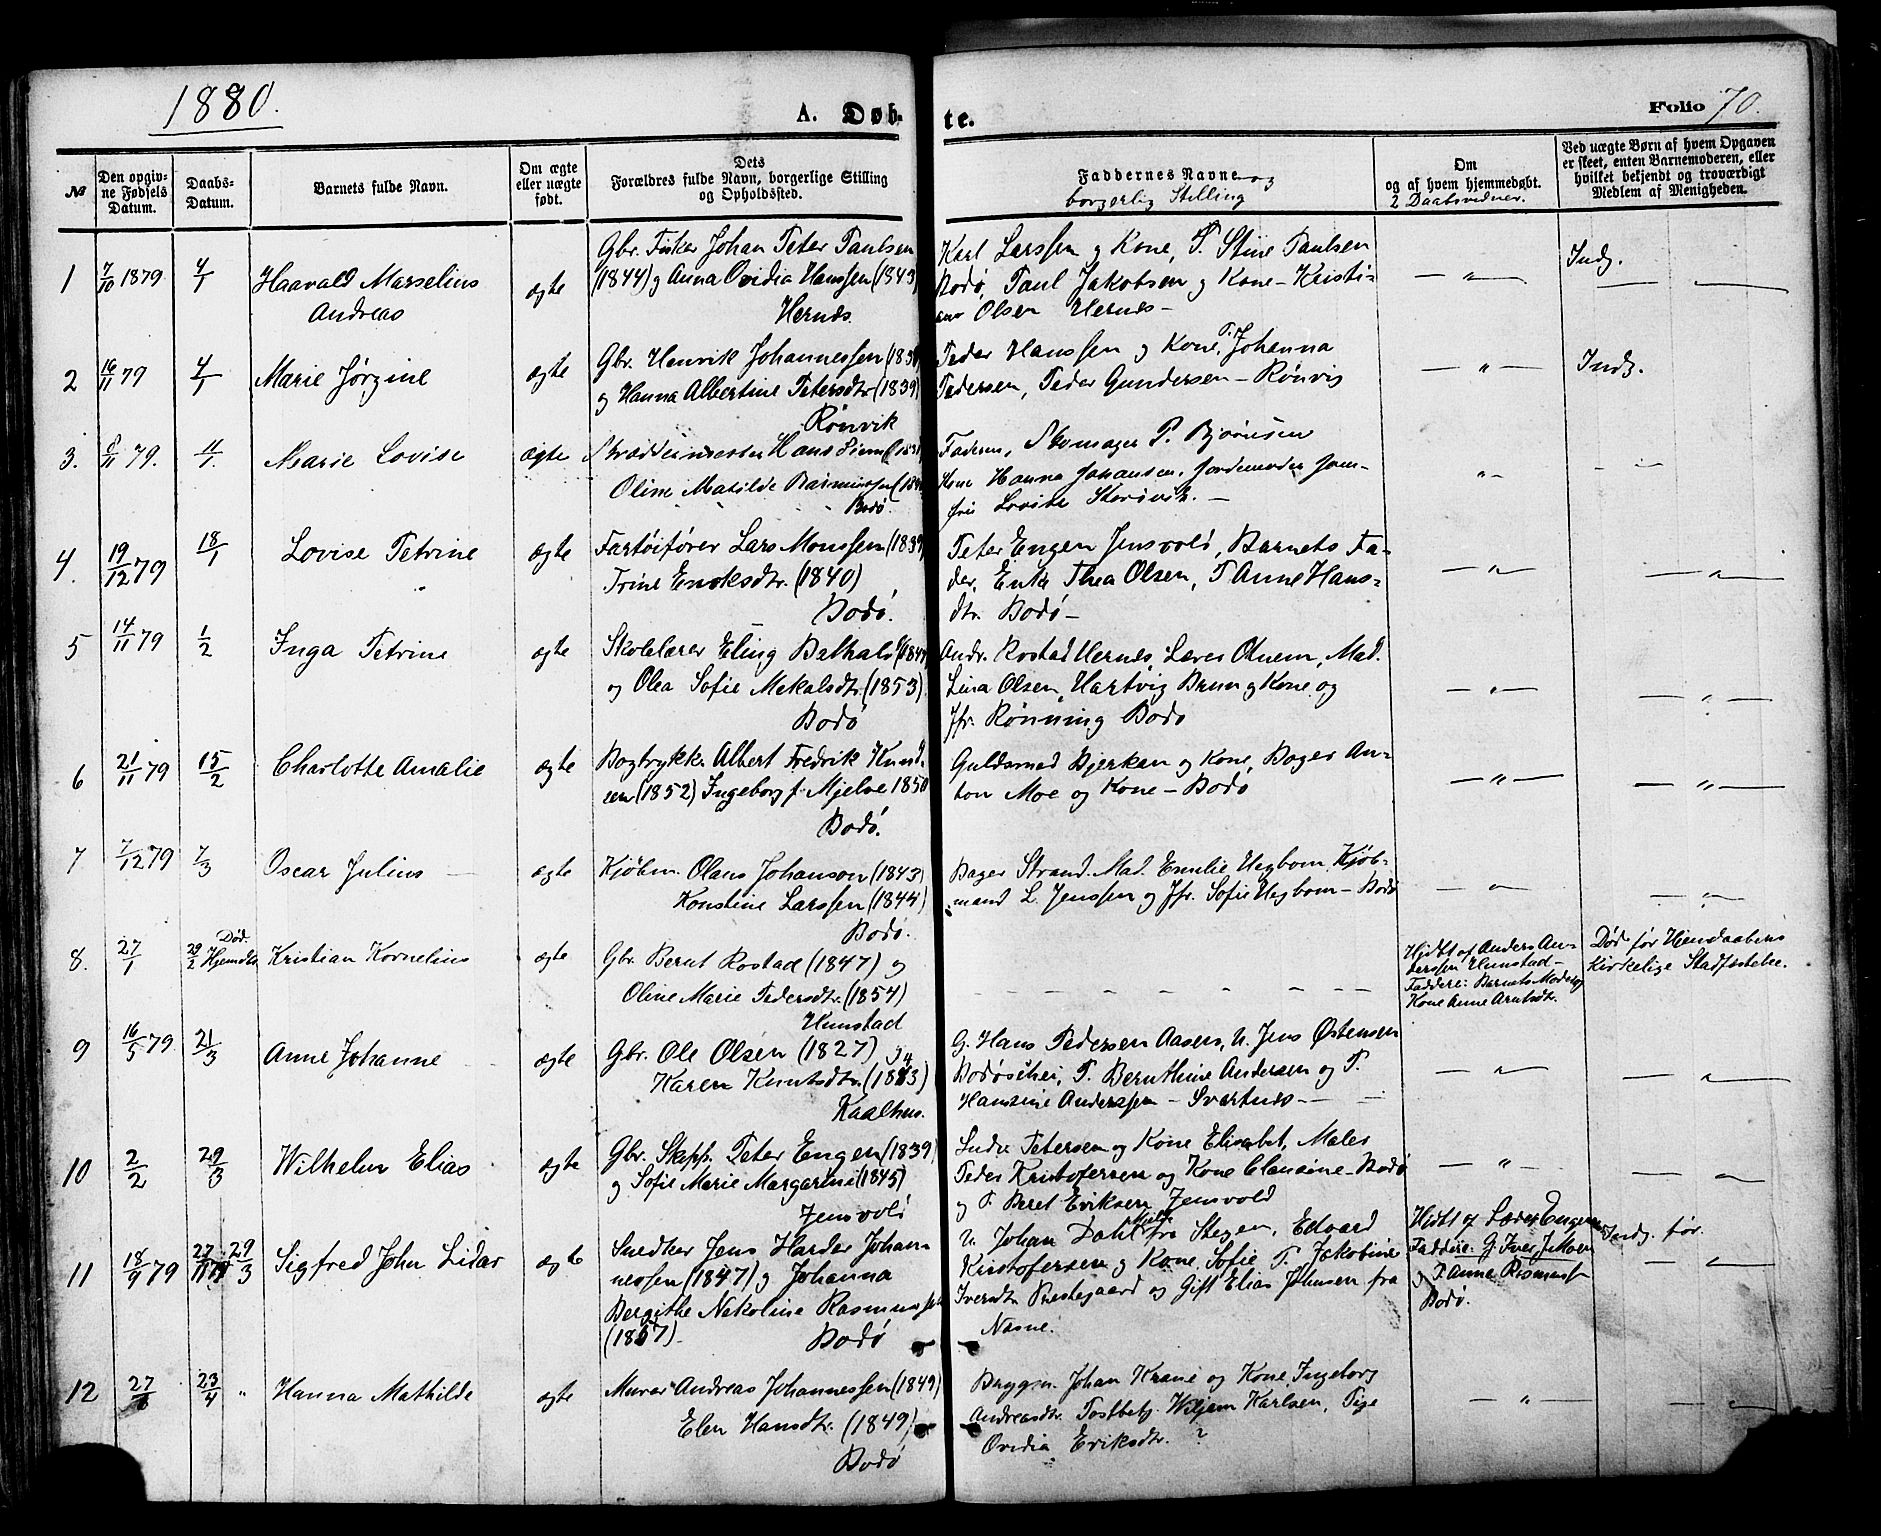 1880.
A. Døb-
te.
Folio 70.
№
Den opgiv-
ne Fødsels
Datum.
Daabs-
Datum.
Barnets fulde Navn.
Om ægte
eller uægte
født.
Dets
Forældres fulde Navn, borgerlige Stilling
og Opholdssted.
Faddernes Navne og
borgerlig Stilling
Om
og af hvem hjemmedøbt.
2 Daabsvidner.
Ved uægte Børn af hvem Opgaven
er skeet, enten Barnemoderen, eller
hvilket bekjendt og troværdigt
Medlem af Menigheden.
1 7/10 1879 4/1 Haavald Marselius
Andreas
ægte
Gbr. Fisker Johan Peter Paulsen
(1844) og Anna Ovidia Hanssen (1843)
Hernes.
Karl Larssen og Kone, P. Stine Paulsen
Bodø, Paul Jakobsen og Kone - Kristi-
ane Olsen Hernes -
— " —
Indg.
2 16/11 79 4/1 Marie Jørgine
ægte
Gbr. Henrik Johannessen
og Hanna Albertine Petersdtr. (1839)
Rønvik
Peder Hanssen og Kone, P. Johanna
Pedersen, Peder Gundersen - Rønvig
— " —
Indg.
3. 8/11 79. 11/1. Marie Lovise
ægte
Skræddermester Hans
Oline Matilde
Bodø.
Faderen, Skomager P. Bjørnsen
Kone Hanna Johansen, Jordemoder Jom-
fru Lovise Storøvik. -
" -
4. 19/12 79 18/1 Lovise Petrine
ægte
Fartøifører Lars Monssen (1839)
Trine Enoksdtr. (1840)
Bodø.
Peter Engen Jensvold, Barnets Fa-
der, Enke Thea Olsen, P. Anne Hans-
dtr. Bodø -
— " —
— " —
5 14/11 79 1/2 Inga Petrine
ægte
Skolelærer Eling
og Olea Sofie Mekalsdtr. (1853)
Bodø
Andr. Rostad Hernes, Lærer Olnem, Mad.
Lina Olsen, Hartvig Brun og Kone og
Jfr. Rønning Bodø
— " —
— " —
6 21/11 79 15/2 Charlotte Amalie
ægte
Bogtrykk. Albert Fredrik Knud-
sen (1852) Ingeborg f. Mjelve 1850
Bodø.
Guldsmed Bjerkan og Kone, Bager An-
ton Moe og Kone - Bodø
— " —
— " —
7 7/12 79 7/3 Oscar Julius
ægte
Kjøbm. Olaus Johanson (1843)
Konstine Larssen (1844)
Bodø.
Bager Strand. Mad. Emilie Uegbom, Kjøb-
mand L. Jenssen og Jfr. Sofie Uegbom - Bodø
— " —
— " —
8. 27/1 29/2 Død. Hjemdbt. Kristian Kornelius
ægte
Gbr. Bernt Rostad (1847) og
Oline Marie Pedersdtr. (1854)
Hunstad
Hjdbt af Anders An-
derssen Hunstad -
Faddere: Barnets Moder og
Kone Anne Arntsdtr.
Død før Hjemdaabens
Kirkelige Stadfæstelse.
9 16/5 79 21/3 Anne Johanne
ægte
Gbr. Ole Olsen (1827) og
Karen Knutsdtr.
Kaalhus.
G. Hans Pedersen Aasen, U. Jens Østensen
Bodøsjøen, P. Bernthine Andersen og P.
Hansine Anderssen - Svartnes -
— " —
— " —
10 2/2 29/3 Wilhelm Elias
ægte
Gbr. Skipp. Peter Engen (1839)
og Sofie Marie Margarine (1845)
Jensvold
Petersen og Kone Elisabet, Maler
Peder Kristofersen og Kone Clausine Bodø
og P. Beret Eriksen Jensvold
— " —
— " —
11 18/9 79 27/11 79 29/3 Sigfred John Lidar
ægte
Snedker Jens Harder Johan-
nessen (1847) og Johanna
Bergithe Nikoline Rasmussen
(1857).
Bodø
U. Johan Dahl fra Stegen, Edvard
Kristofersen og Kone Sofie P. Jakobine
Iversdtr Prestegaard og Gift Elias Johnsen fra
Nesne.
Hjdbt af Lærer Engen
Faddere: G. Iver J. Moen
og P. Anna Rasmuss
Bodø.
Indg. før.
— " —
12 27/ 23/4 " Hanna Mathilde
ægte
Murer Andreas Johannessen (1849)
Elen Hansdtr. (1849)
Bodø
Brygm. Johan Krane og Kone Ingeborg
Andreasdtr. Postbetj. Wiljam Karlsen, Pige
Ovidia Eriksdtr. ?
— " —
— " —